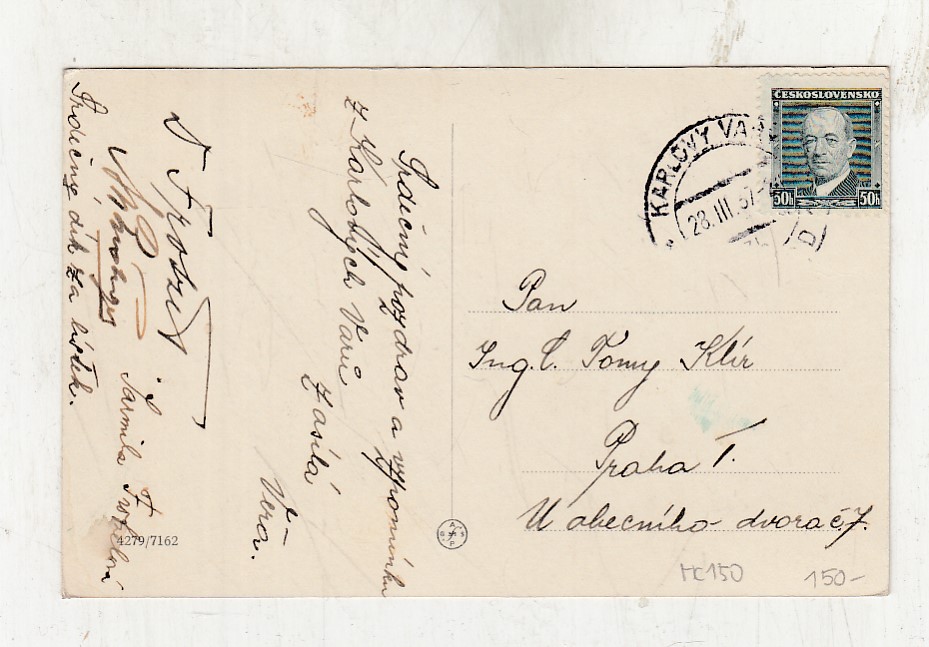 Srdečný pozdrav a vzpomínku
z Karlových Varů
zasílá
Věra.
Jarmila
Srdečný dík za lístek.
4279/7162
ČESKOSLOVENSKO
50h 50h
KARLOVY VA
28.III.37
Pan
Ing. C. Tomy Klír
Praha I.
U obecního dvora č. 7.
MC150
150-